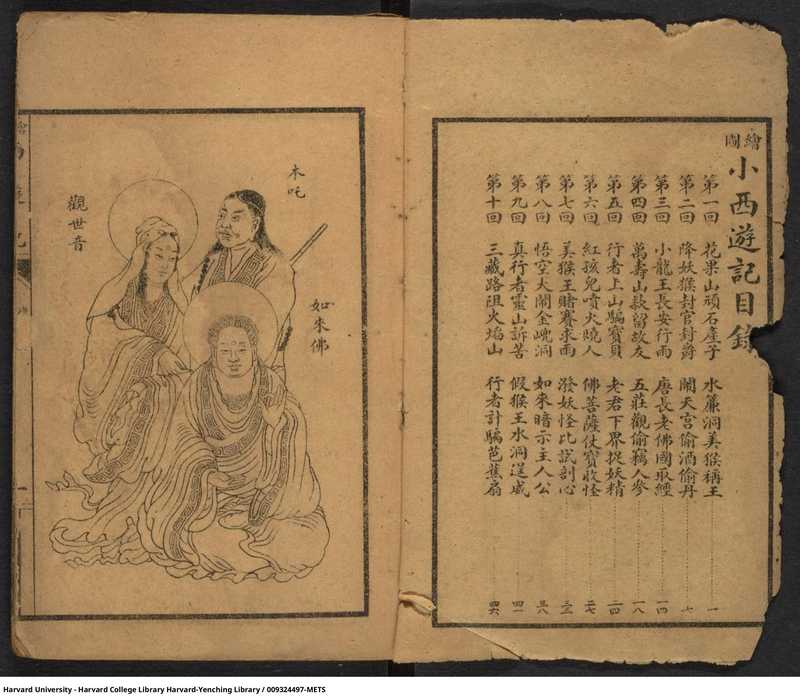 繪圖
小西遊記目錄
第一回 花果山頑石產子 水簾洞美猴稱王 一
第二回 降妖猴封官封爵 鬧天宮偷酒偷丹 七
第三回 小龍王長安行雨 唐長老佛國取經 一四
第四回 萬壽山款留故友 五莊觀偷竊人參 一八
第五回 行者上山騙寶貝 老君下界捉妖精 二四
第六回 紅孩兒噴火燒人 佛菩薩仗寶收怪 二七
第七回 美猴王賭賽求雨 潑妖怪比試剖心 三三
第八回 悟空大鬧金洞 如來暗示主人公 三八
第九回 真行者靈山訴苦 假猴王水洞逞威 四一
第十回 三藏路阻火焰山 行者計騙芭蕉扇 四六
如來佛
木吒
觀世音
Harvard University - Harvard College Library Harvard-Yenching Library / 009324497-METS